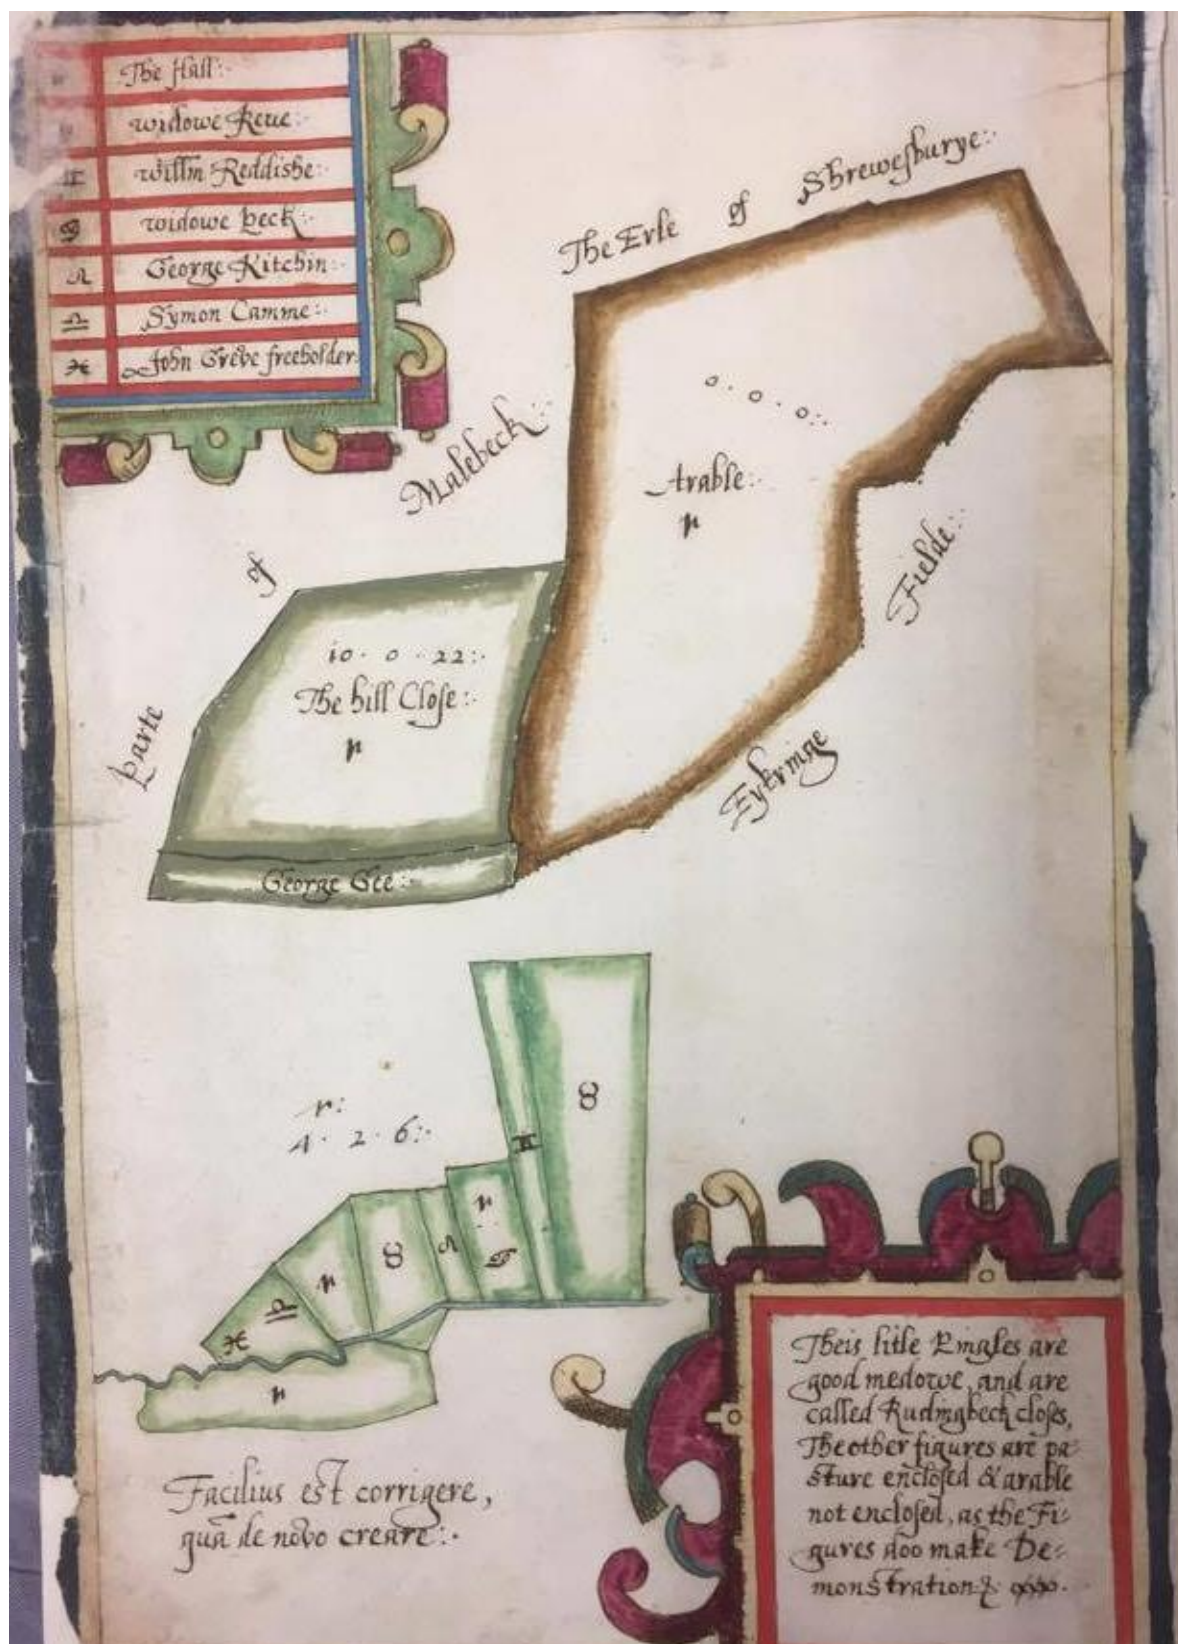 The Hall:
widowe Reue:
willm Reddishe:
widowe beck:
George Kitchin:
Symon Camme:
John Greve freeholder
The Erle of Shrewesburye:
Malebeck:
of
parte
0 · 0 · 0:
Arable:
Fielde:
Eykringe
10 · 0 · 22:
The hill Close:
George Gee:
4 · 2 · 6:
Facilius est corrigere,
quā de novo creare:
Theis litle Pingles are
good medowe, and are
called Rudingbeck closes,
The other figures are pa=
sture enclosed & arable
not enclosed, as the Fi=
gures doo make De=
monstration